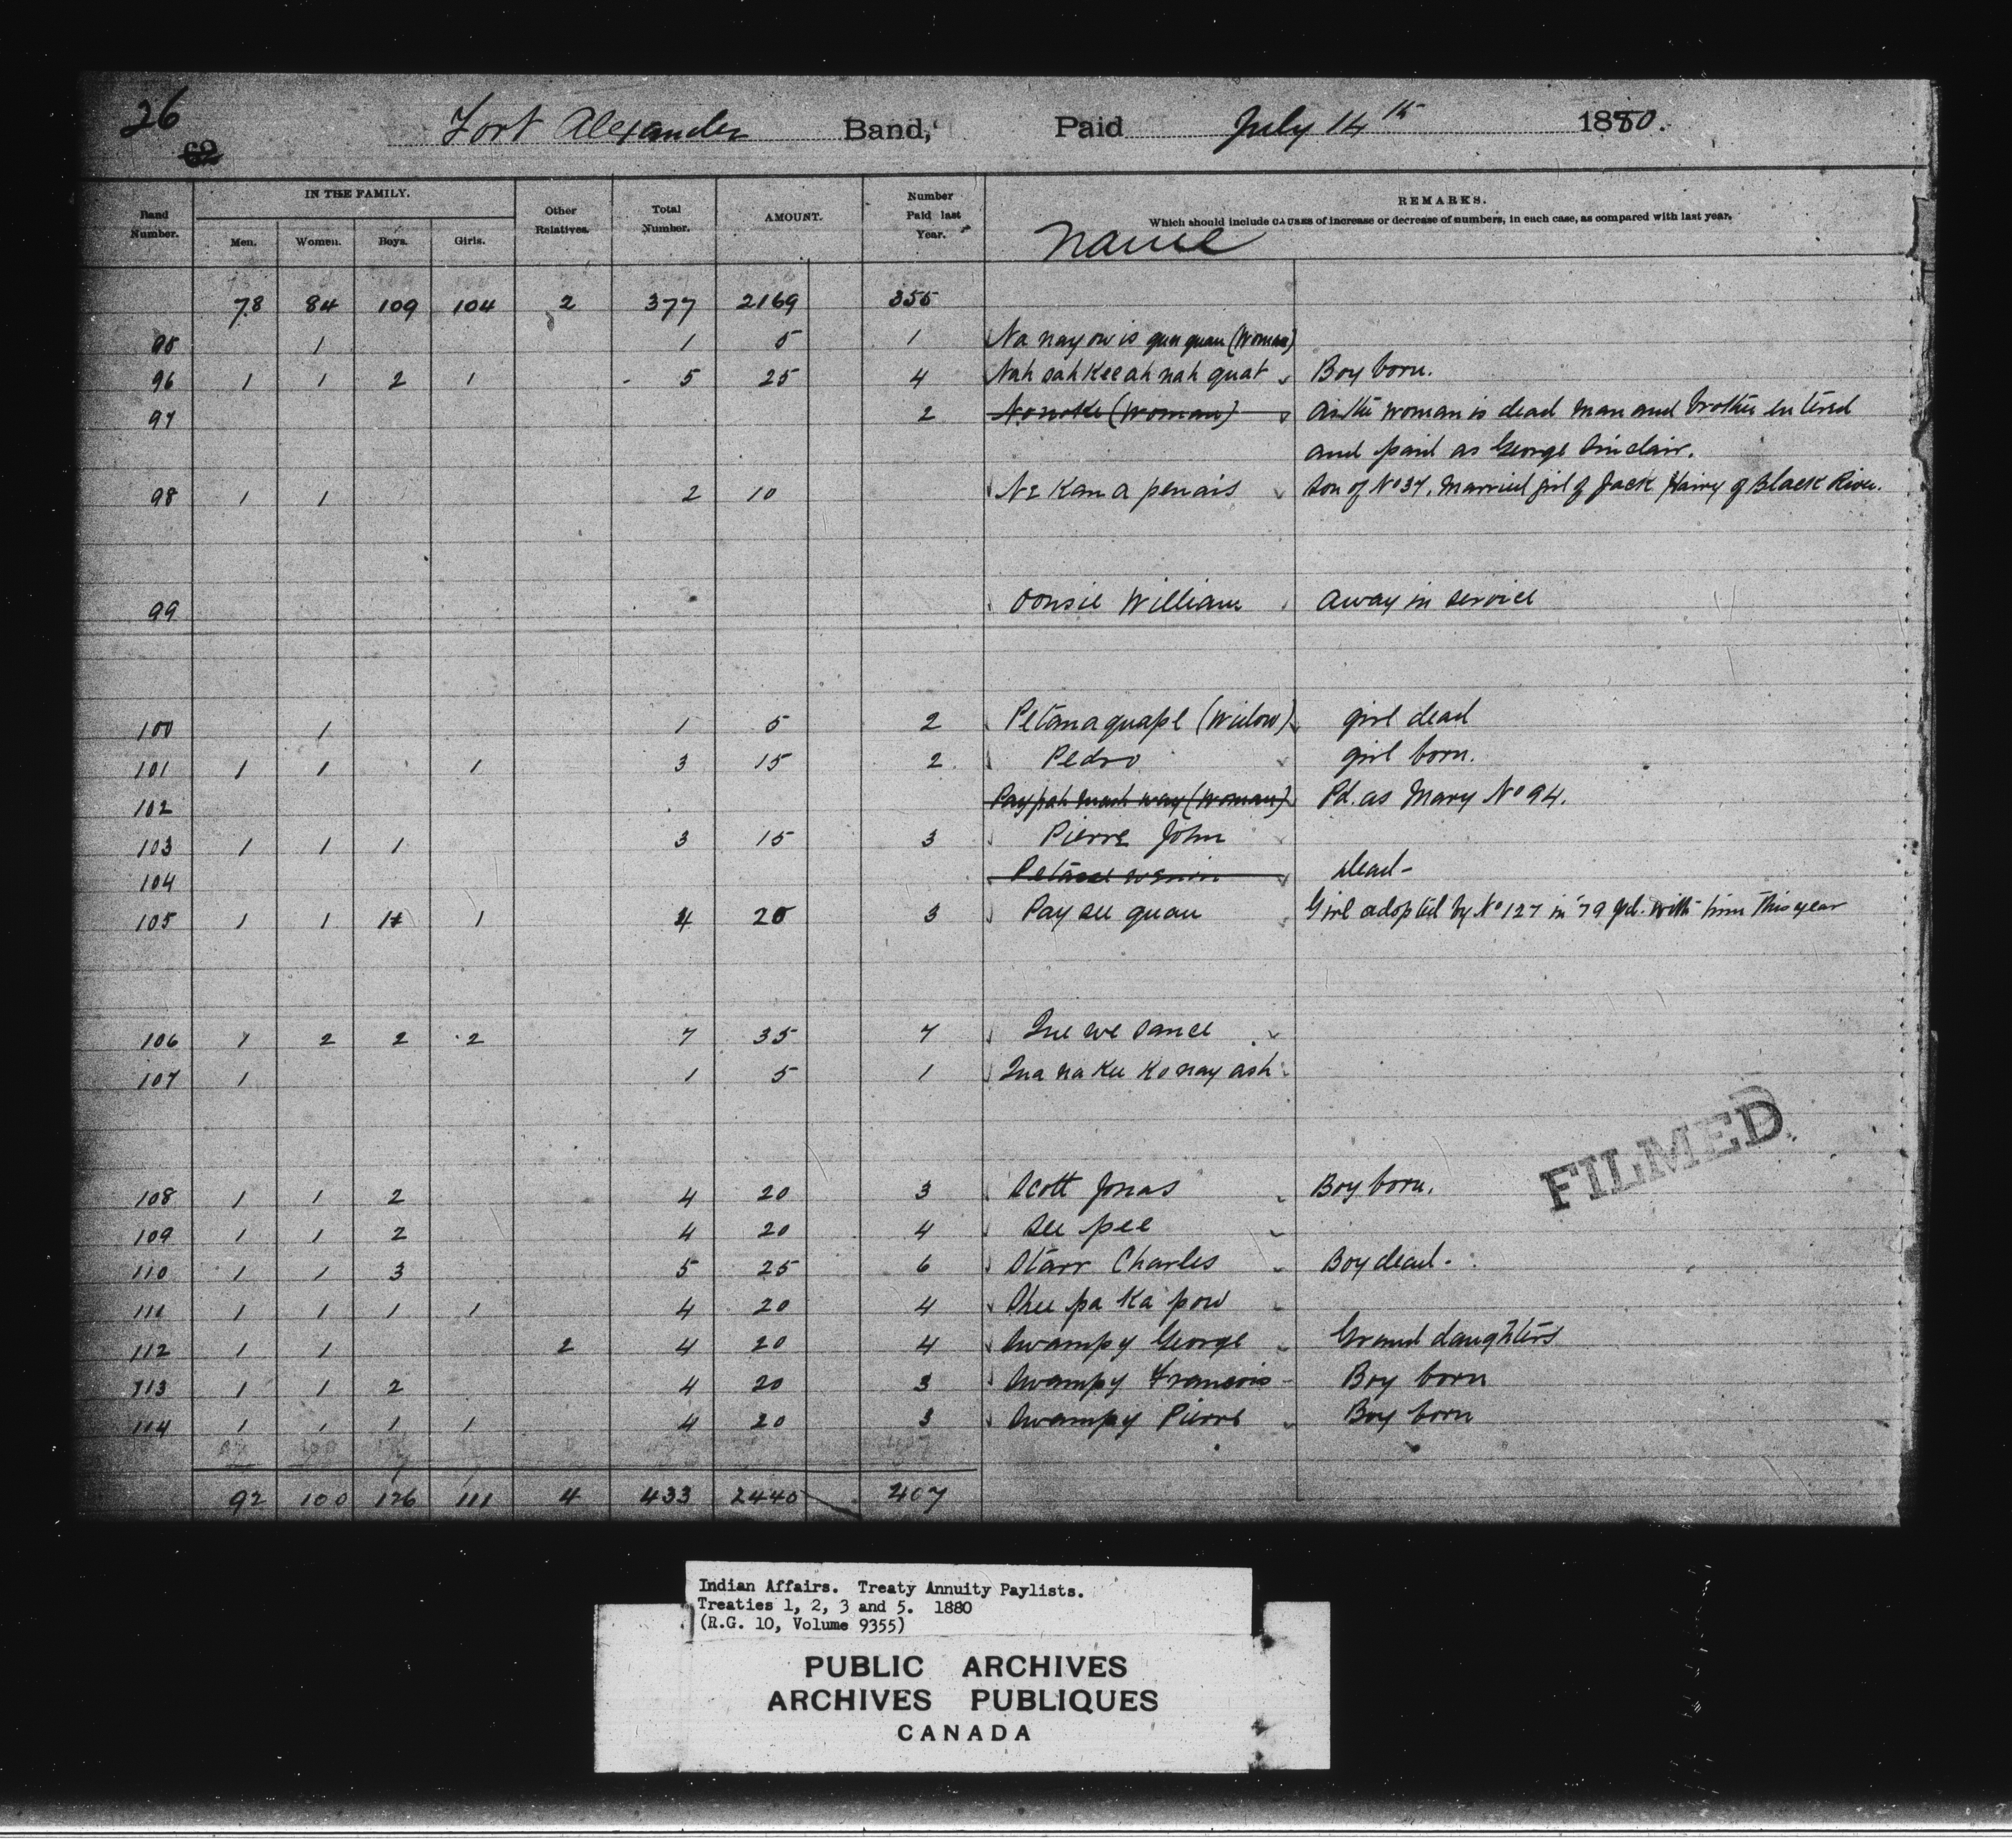 26
62
Fort Alexander Band, Paid July 14th 1880.
Band Number. IN THE FAMILY. Men. Women. Boys. Girls. Other Relatives. Total Number. AMOUNT. Number Paid last Year. REMARKS.
Which should include CAUSES of increase or decrease of numbers, in each case, as compared with last year.
Name
78 84 109 104 2 377 2169 355
95 1 1 5 1 Na nay ow is gun quan (Woman)
96 1 1 2 1 5 25 4 Nah sah Kee ah nah quat Boy born.
97 2 Nonoke (Woman) As the woman is dead man and brother entered
and paid as George Sinclair.
98 1 1 2 10 Ne Kan a penais Son of No 37. Married girl of Jack Hairy of Black River.
99 Oonsie William Away in service
100 1 1 5 2 Petanaquape (Widow) girl dead
101 1 1 1 3 15 2 Pedro girl born.
102 Pay pah mah way (Woman) Pd. as Mary No 94.
103 1 1 1 3 15 3 Pierre John
104 Dead-
105 1 1 1 1 4 20 3 Pay see quan Girl adopted by No 127 in '79 pd. with him this year
106 1 2 2 2 7 35 7 Que we sance
107 1 1 5 1 Qua na Kee Ko nay ash
108 1 1 2 4 20 3 Scott Jonas Boy born.
109 1 1 2 4 20 4 See pee
110 1 1 3 5 25 6 Starr Charles Boy dead.
111 1 1 1 1 4 20 4 Shee pa Ka pow
112 1 1 2 4 20 4 Swampy George Grand daughters
113 1 1 2 4 20 3 Swampy Francois Boy born
114 1 1 1 1 4 20 3 Swampy Pierre Boy born
92 100 126 111 4 433 2440 407
FILMED
Indian Affairs. Treaty Annuity Paylists.
Treaties 1, 2, 3 and 5. 1880
(R.G. 10, Volume 9355)
PUBLIC ARCHIVES
ARCHIVES PUBLIQUES
CANADA